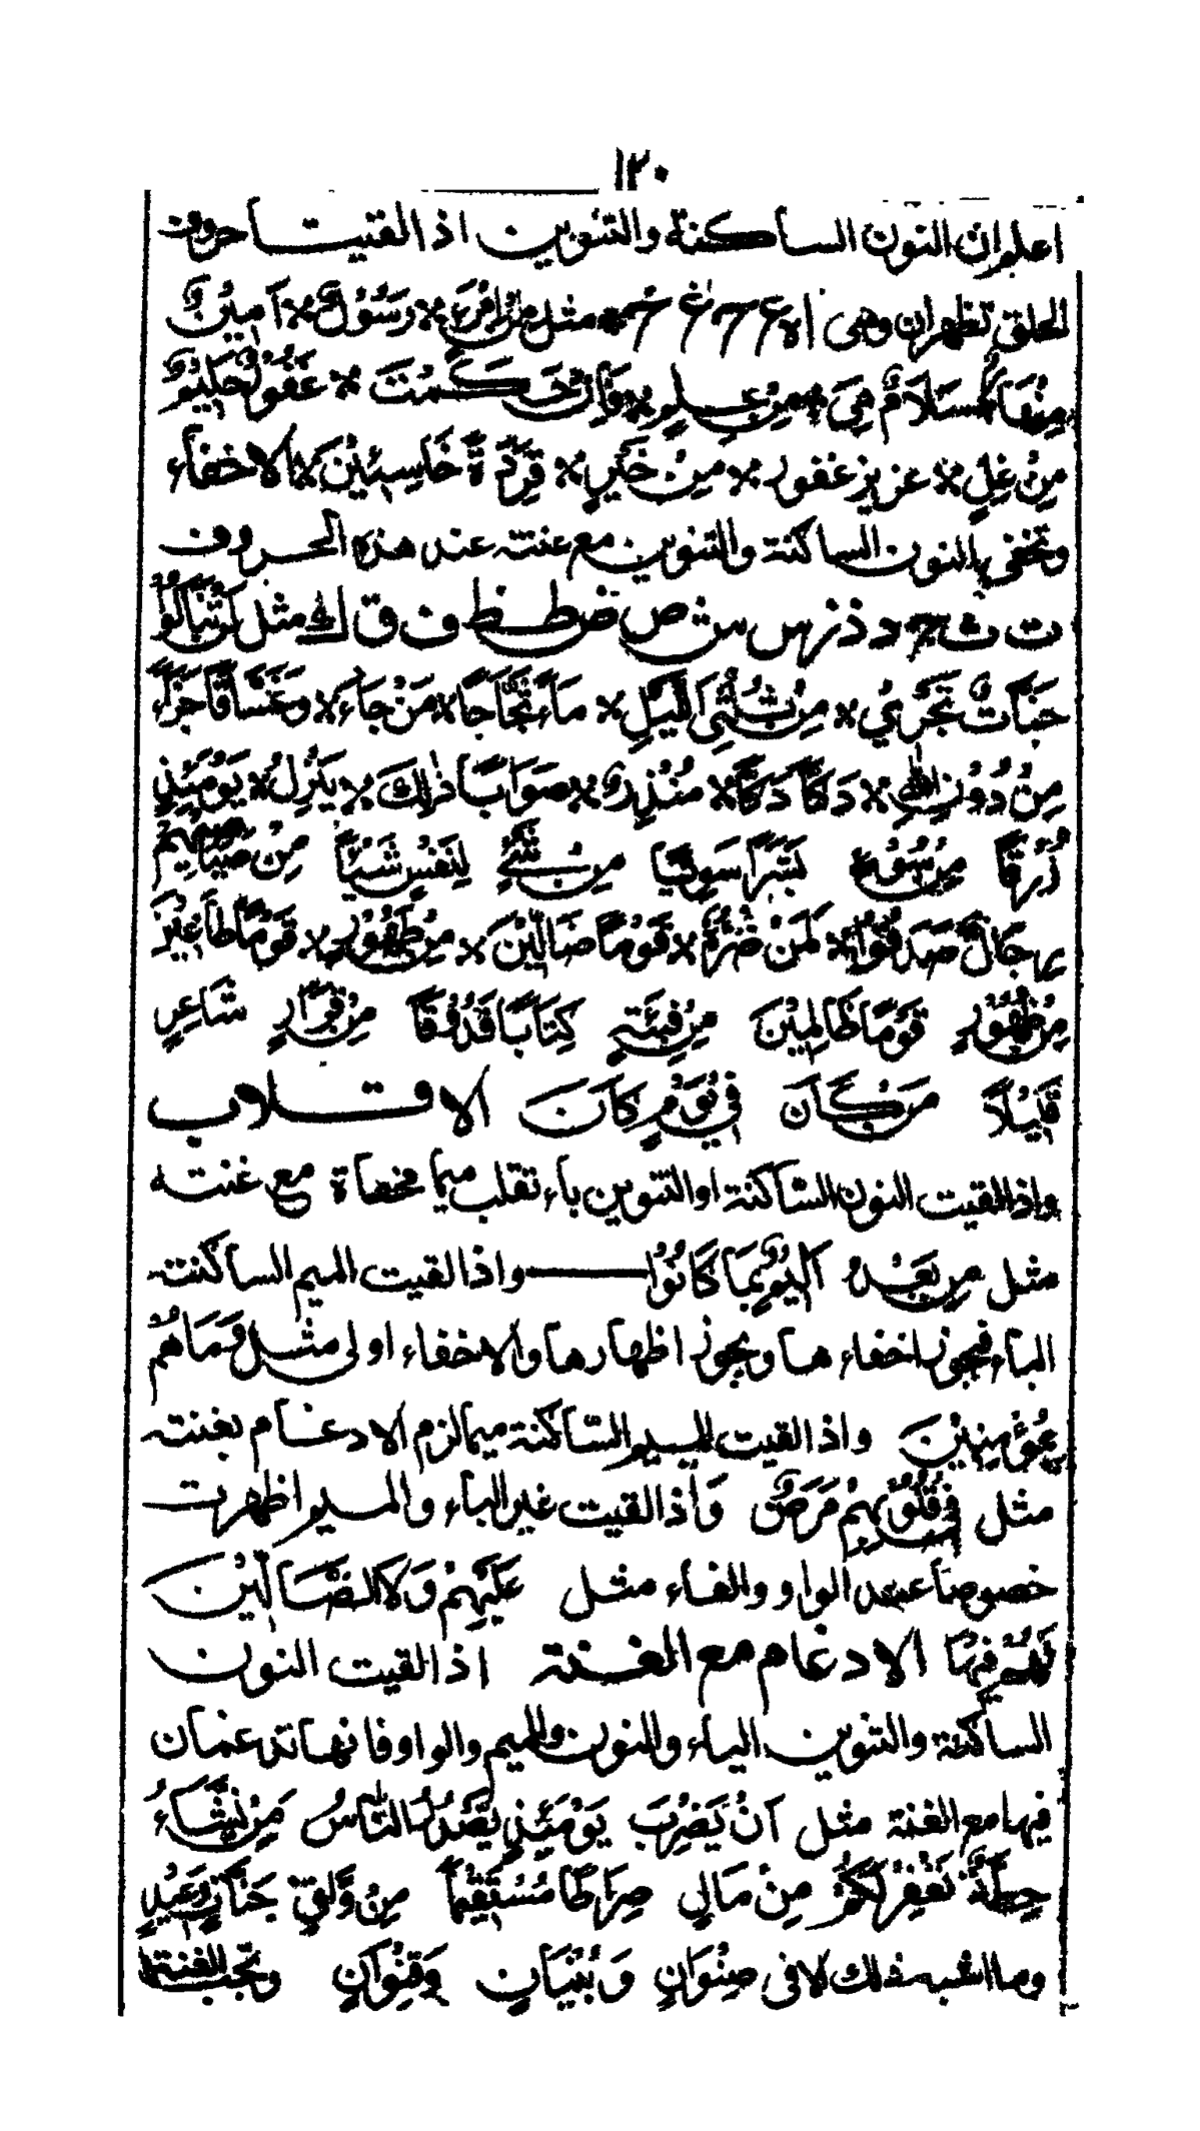 ١٢٠
اعلم ان النون الساكنة والتنوين اذا لقيت حروف
الحلق تظهران وهى ء ا ه ع ح غ خ مثل مَنْ اٰمَنَ رَسُوْلٌ اَمِيْنٌ
مِنْهَا سَلَامٌ هِيَ مِنْ عِلْمٍ وَانْحَرْ غَفُوْرٌ حَلِيْمٌ
مِنْ غِلٍّ عزيز غفور مِنْ خَيْرٍ قِرَدَةً خَاسِئِيْنَ الاخفاء
وتخفى بالنون الساكنة والتنوين مع غنته عند هذه الحروف
ت ث ج د ذ ز س ش ص ض ط ظ ف ق ك مثل لَنْ تَنَالُوا
جَنَّاتٌ تَجْرِيْ مِنْ ثُلُثَيِ الَّيْلِ مَاءً ثَجَّاجًا مَنْ جَاءَ وَغَسَّاقًا جَزَاءً
مِنْ دُوْنِ اللّٰهِ دَكًّا دَكًّا مُنْذِرٌ صَوَابًا ذٰلِكَ يَنْزِلُ يَوْمَئِذٍ
زُرْقًا مِنْ سُوْءٍ بَشَرًا سَوِيًّا مِنْ شَيْءٍ لِنَفْسٍ شَيْئًا مِنْ صَيَاصِيْهِمْ
رِجَالٌ صَدَقُوْا لَمَنْ ضَرُّهُ قَوْمًا ضَالِّيْنَ مِنْ طَهُوْرٍ قَوْمًا طَاغِيْنَ
مِنْ ظَهِيْرٍ قَوْمًا ظَالِمِيْنَ مِنْ فِئَةٍ كِتَابًا فَذُوْقُوْا مِنْ قَرَارٍ شَاعِرٍ
قَلِيْلًا مَنْ كَانَ فِيْ يَوْمٍ كَانَ الاقلاب
واذا لقيت النون الساكنة او التنوين باء تقلب ميما مخفاة مع غنته
مثل مِنْ بَعْدِ اَلِيْمٌ بِمَا كَانُوْا واذا لقيت الميم الساكنته
الباء فيجوز اخفاء ها ويجوز اظهارها والاخفاء اولى مثل وَمَا هُمْ
بِمُؤْمِنِيْنَ واذا لقيت الميم الساكنة ميما لزم الادغام بغنته
مثل فِيْ قُلُوْبِهِمْ مَرَضٌ وَاذا لقيت غير الباء والميم اظهرت
خصوصا عند الواو والفاء مثل عَلَيْهِمْ وَلَا الضَّالِّيْنَ
لَهُمْ فِيْهَا الادغام مع الغنته اذا لقيت النون
الساكنة والتنوين الياء والنون والميم والواو فانها تدغمان
فيها مع الغنة مثل اَنْ يَضْرِبَ يَوْمَئِذٍ يَصْدُرُ النَّاسُ مَنْ نَشَاءُ
حِطَّةٌ نَغْفِرْ لَكُمْ مِنْ مَالِ صِرَاطًا مُسْتَقِيْمًا مِنْ وَّلِيٍّ جَنَّاتٍ وَعُيُوْنٍ
وما اشبه ذلك لا فى صِنْوَانٍ وَبُنْيَانٍ وَقِنْوَانٍ وتجب الغنة